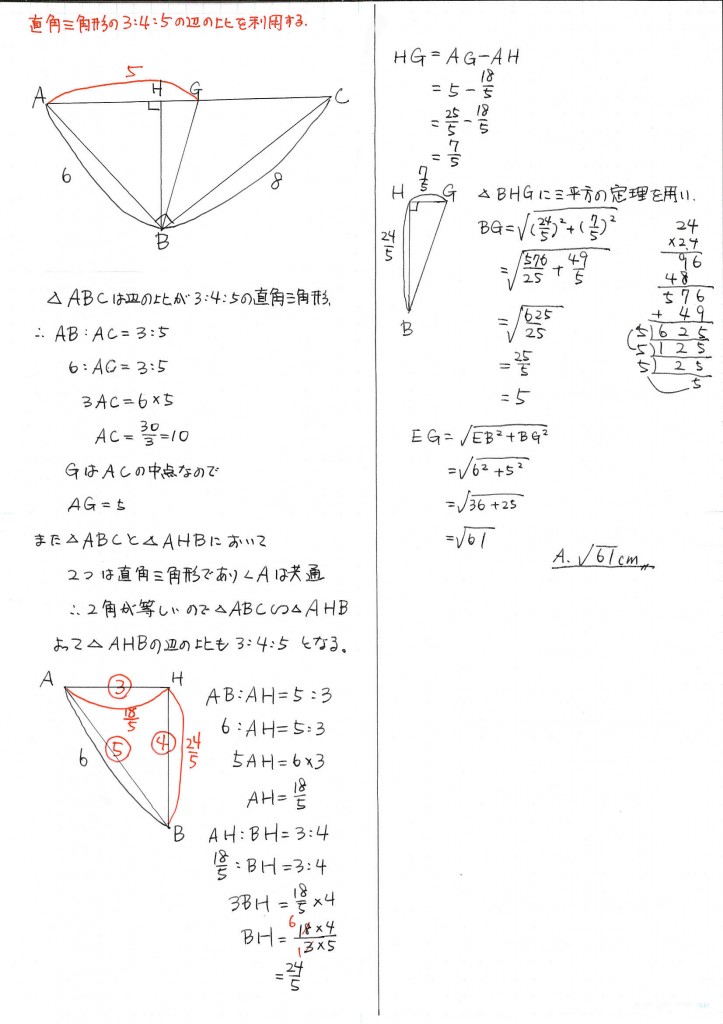 直角三角形の3:4:5の辺の比を利用する.
5
A H G C
6 8
B
△ABCは辺の比が3:4:5の直角三角形.
∴ AB:AC=3:5
6:AC=3:5
3AC=6×5
AC=30/3=10
GはACの中点なので
AG=5
また△ABCと△AHBにおいて
2つは直角三角形であり∠Aは共通
∴2角が等しいので△ABC∽△AHB
よって△AHBの辺の比も3:4:5となる。
A ③ H
18/5
6 ⑤ ④ 24/5
B
AB:AH=5:3
6:AH=5:3
5AH=6×3
AH=18/5
AH:BH=3:4
18/5:BH=3:4
3BH=18/5×4
6
BH=18×4/3×5
1
=24/5
HG=AG-AH
=5-18/5
=25/5-18/5
=7/5
7/5
H G
24/5
B
△BHGに三平方の定理を用い.
BG=√(24/5)²+(7/5)²
=√576/25+49/5
=√625/25
=25/5
=5
24
×24
96
48
576
+49
5)625
5)125
5)25
5
EG=√EB²+BG²
=√6²+5²
=√36+25
=√61
A. √61cm〃